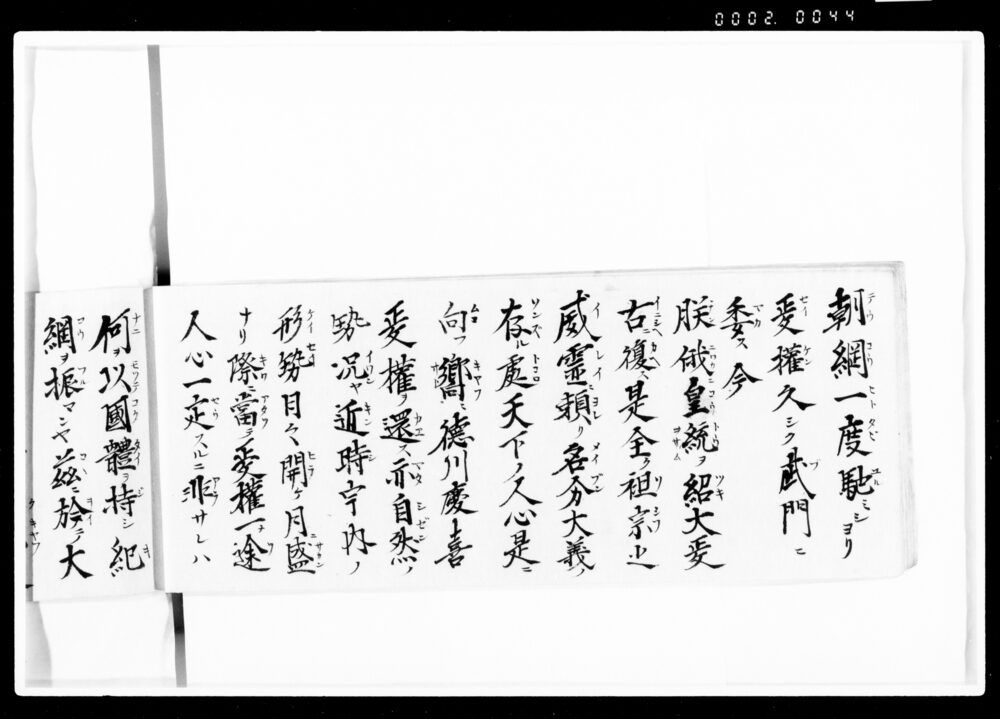 0002.0044
朝綱一度馳ミシヨリ
政權久シク武門ニ
委ス今
朕俄皇統ヲ紹大政
古ニ復ス是全ク祖宗之
威靈ニ頼リ名分大義ノ
存ル處天下ノ人心是ニ
向フ嚮ニ德川慶喜
政權ヲ還ス亦自然ノ
勢況ヤ近時宇内ノ
形勢日々開ケ月盛
ナリ際ニ當ヲ政權一途
人心一定スルニ非サレハ
何ヲ以國體ヲ持シ紀
綱ヲ振マンヤ茲ニ於テ大